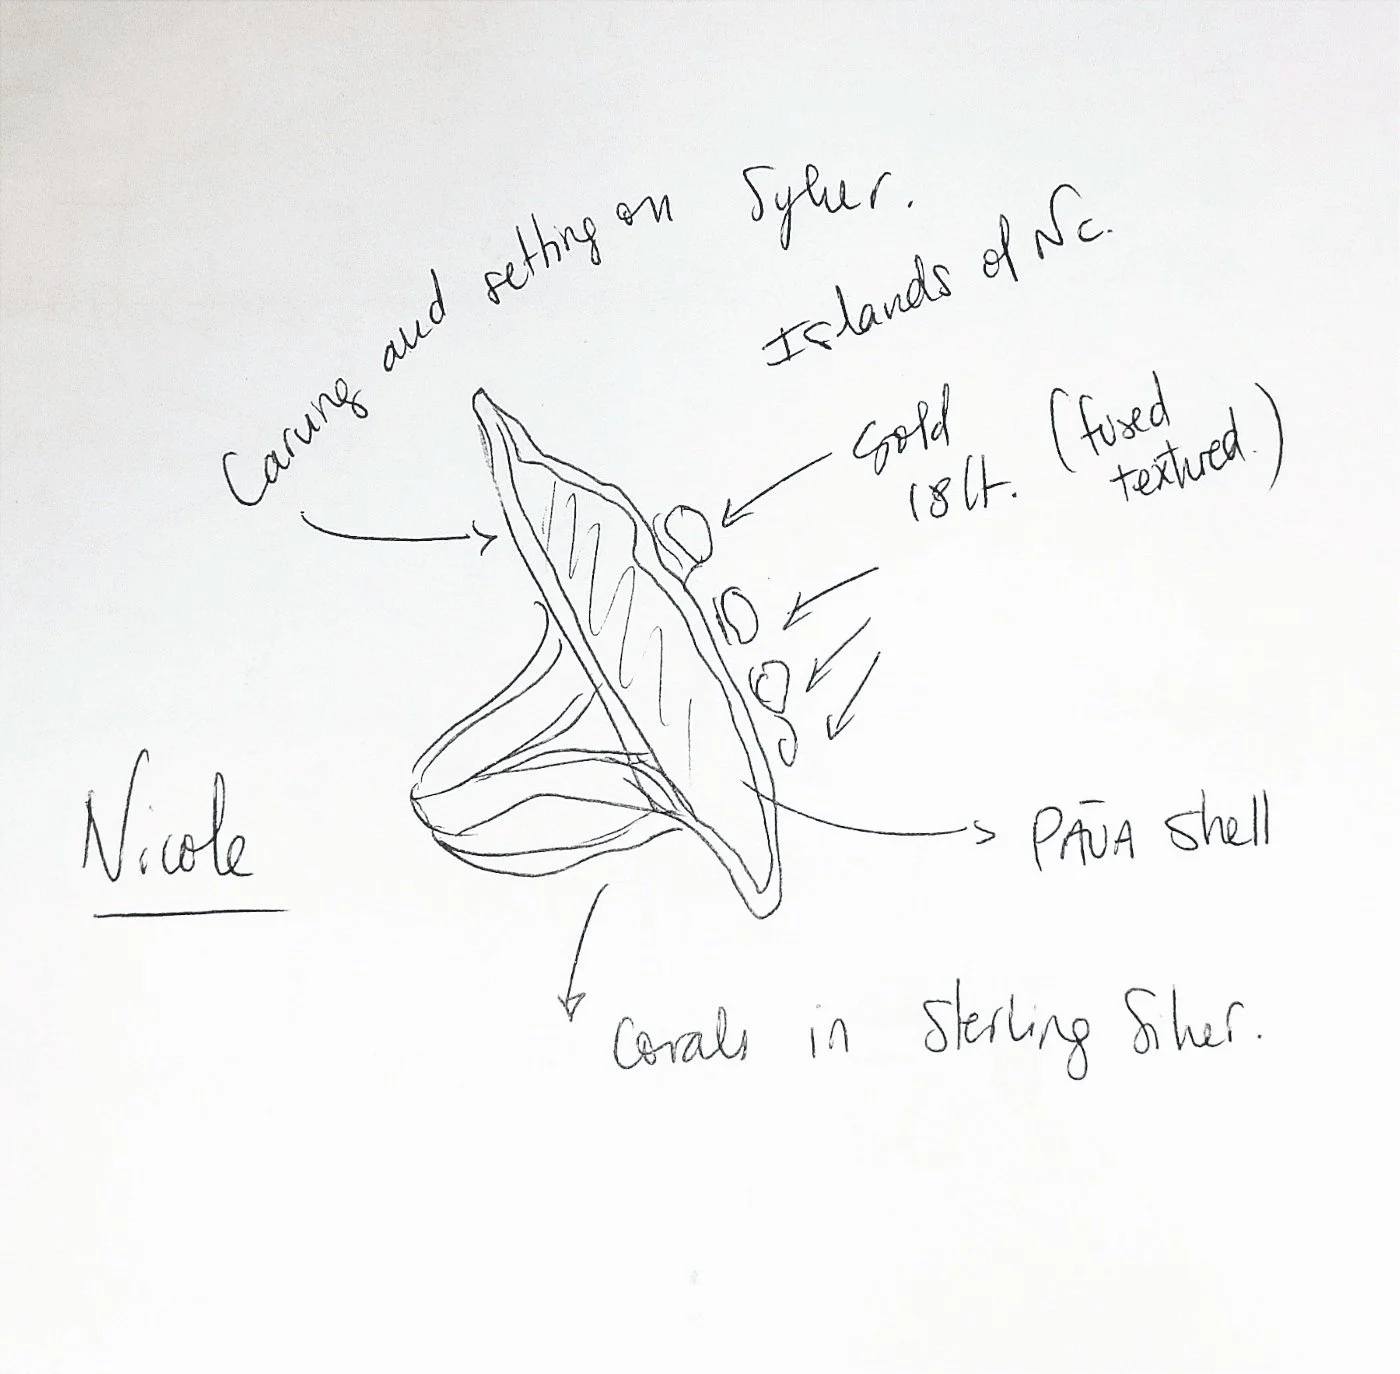 Carving and setting on Sylver.
Islands of Nc.
Gold (fused
18ct. textured.)
Nicole
PĀUA Shell
Corals in Sterling Silver.